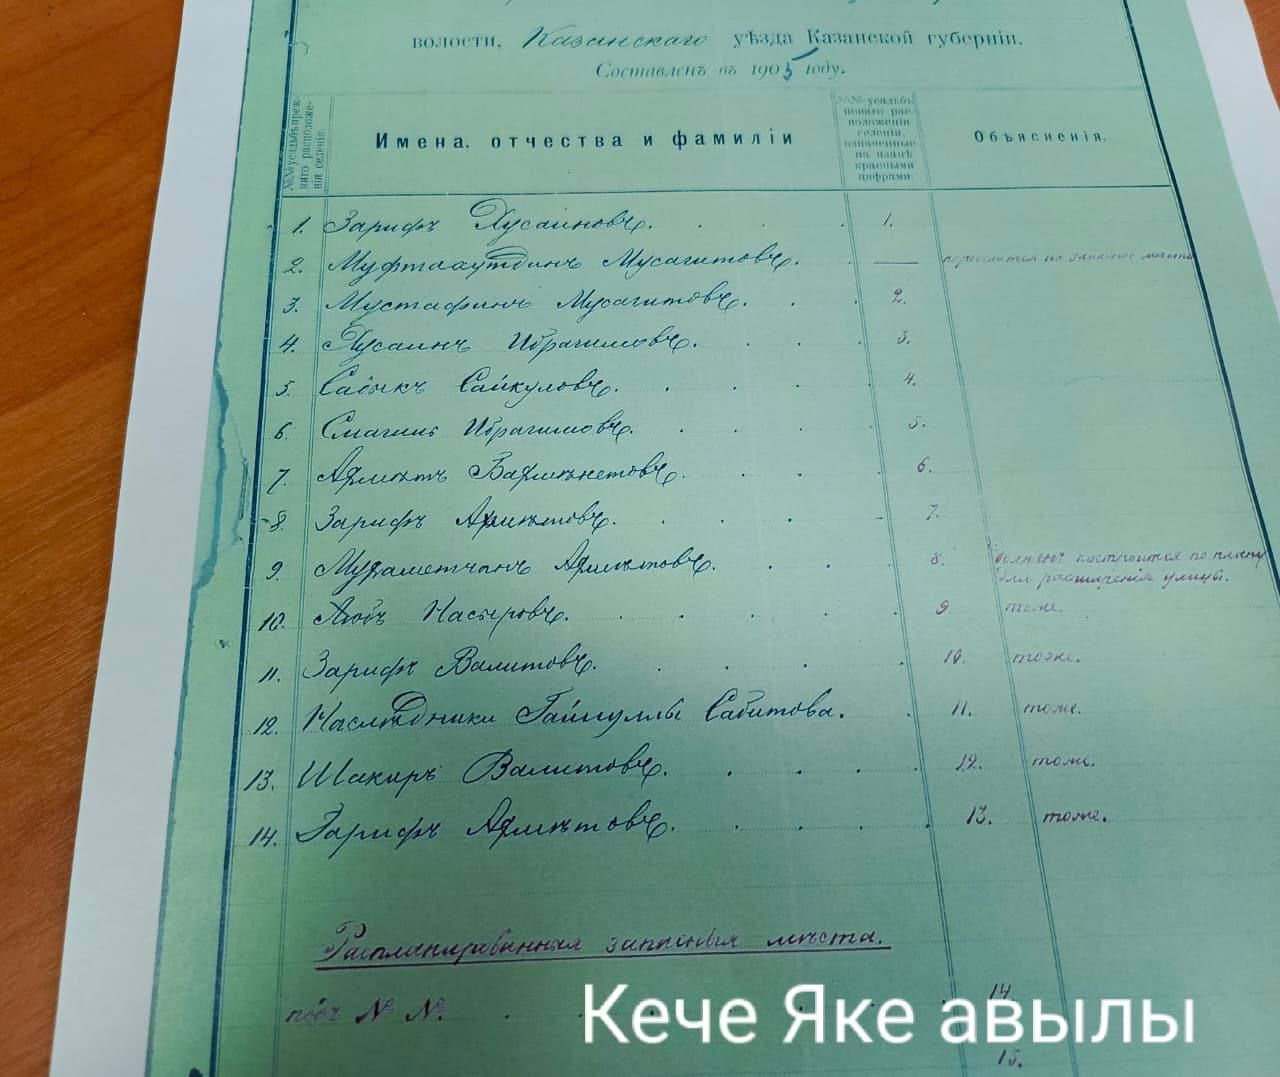 волости, Казанскаго уѣзда Казанской губерніи.
Составленъ въ 1905 году.
№№ усадьбъ прежняго расположенія селенія.
Имена, отчества и фамиліи
№№ усадьбъ новаго расположенія селенія, означенные на планѣ красными цифрами.
Объясненія.
1. Зарифъ Хусаиновъ. 1.
2. Мусагитовъ. — переселится на запасное мѣсто
3. Мустафинъ Мусагитовъ. 2.
4. Хусаинъ Ибрагимовъ. 3.
5. Садыкъ Сайкуловъ. 4.
6. Смагилъ Ибрагимовъ. 5.
7. Ахмѣтъ 6.
8. Зарифъ Ахмѣтовъ. 7.
9. Мухаметчанъ Ахмѣтовъ. 8. долженъ построится по плану
для расширенія улицы.
10. Аюбъ Насыровъ. 9. тоже.
11. Зарифъ Валитовъ. 10. тоже.
12. Наслѣдники Гайнуллы Сабитова. 11. тоже.
13. Шакиръ Валитовъ. 12. тоже.
14. Гарифъ Ахмѣтовъ. 13. тоже.
Распланированныя запасныя мѣста.
подъ №№. 14.
15.
Кече Яке авылы